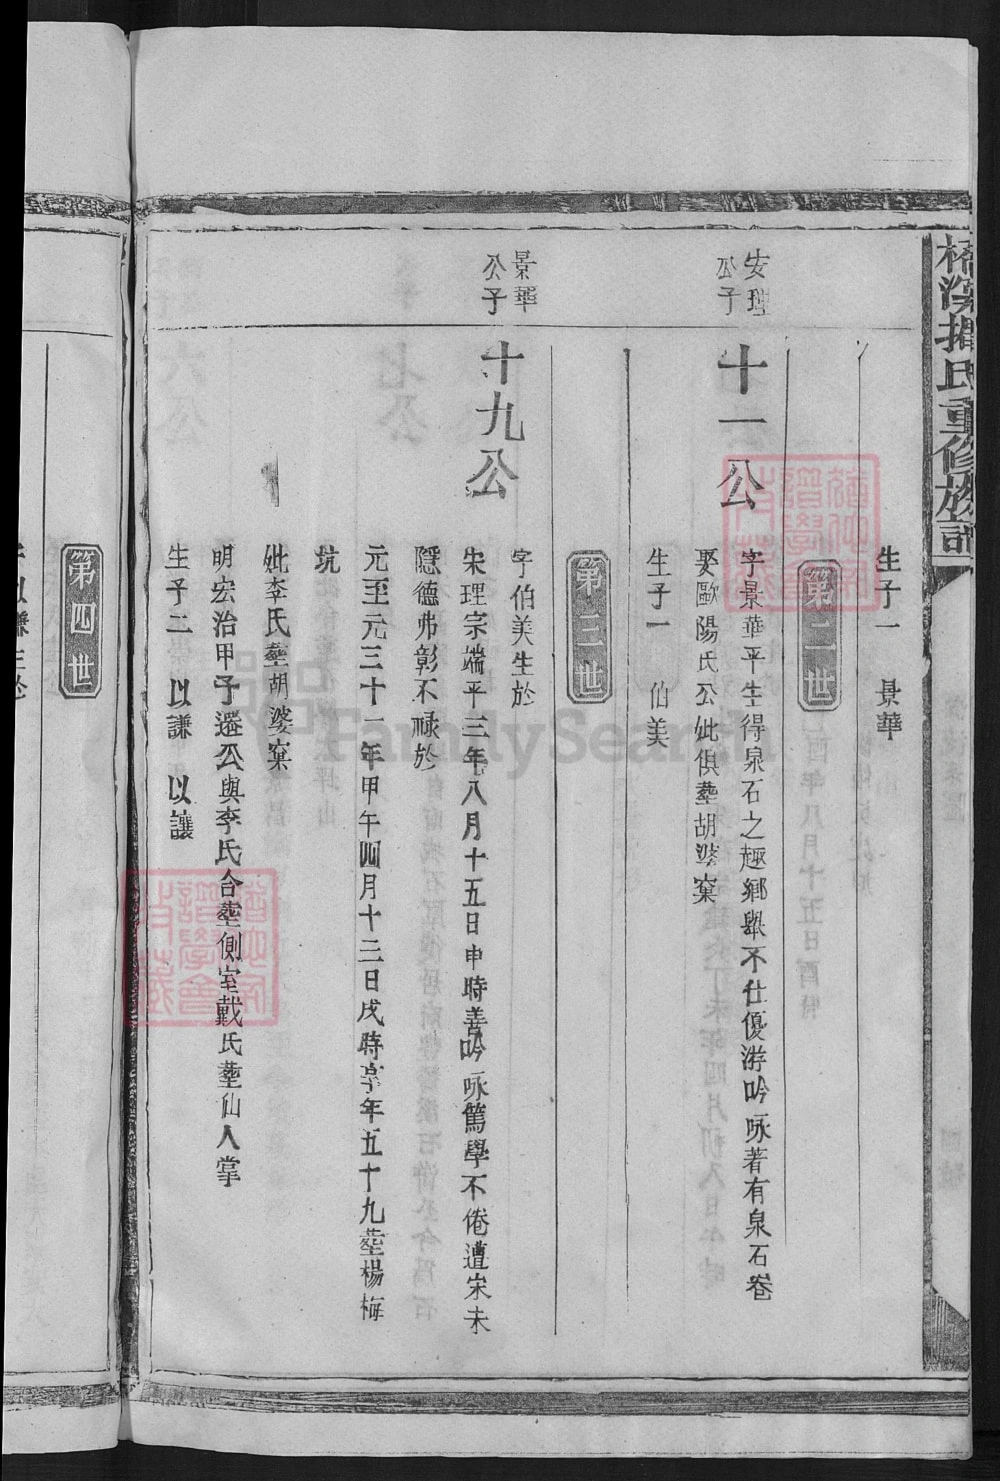 氏重修族譜
生子一 景華
第二世
安理公子
十一公
字景華平生得泉石之趣鄉舉不仕優游吟咏著有泉石卷
娶歐陽氏公妣俱塟胡婆窠
生子一 伯美
第三世
景華公子
十九公
字伯美生於
宋理宗端平三年八月十五日申時善吟咏篤學不倦遭宋末
隱德弗彰不祿於
元至元三十一年甲午四月十三日戌時享年五十九塟楊梅
坑
妣李氏塟胡婆窠
明宏治甲子遷公與李氏合塟側室戴氏塟仙人掌
生子二 以謙 以讓
第四世
FamilySearch